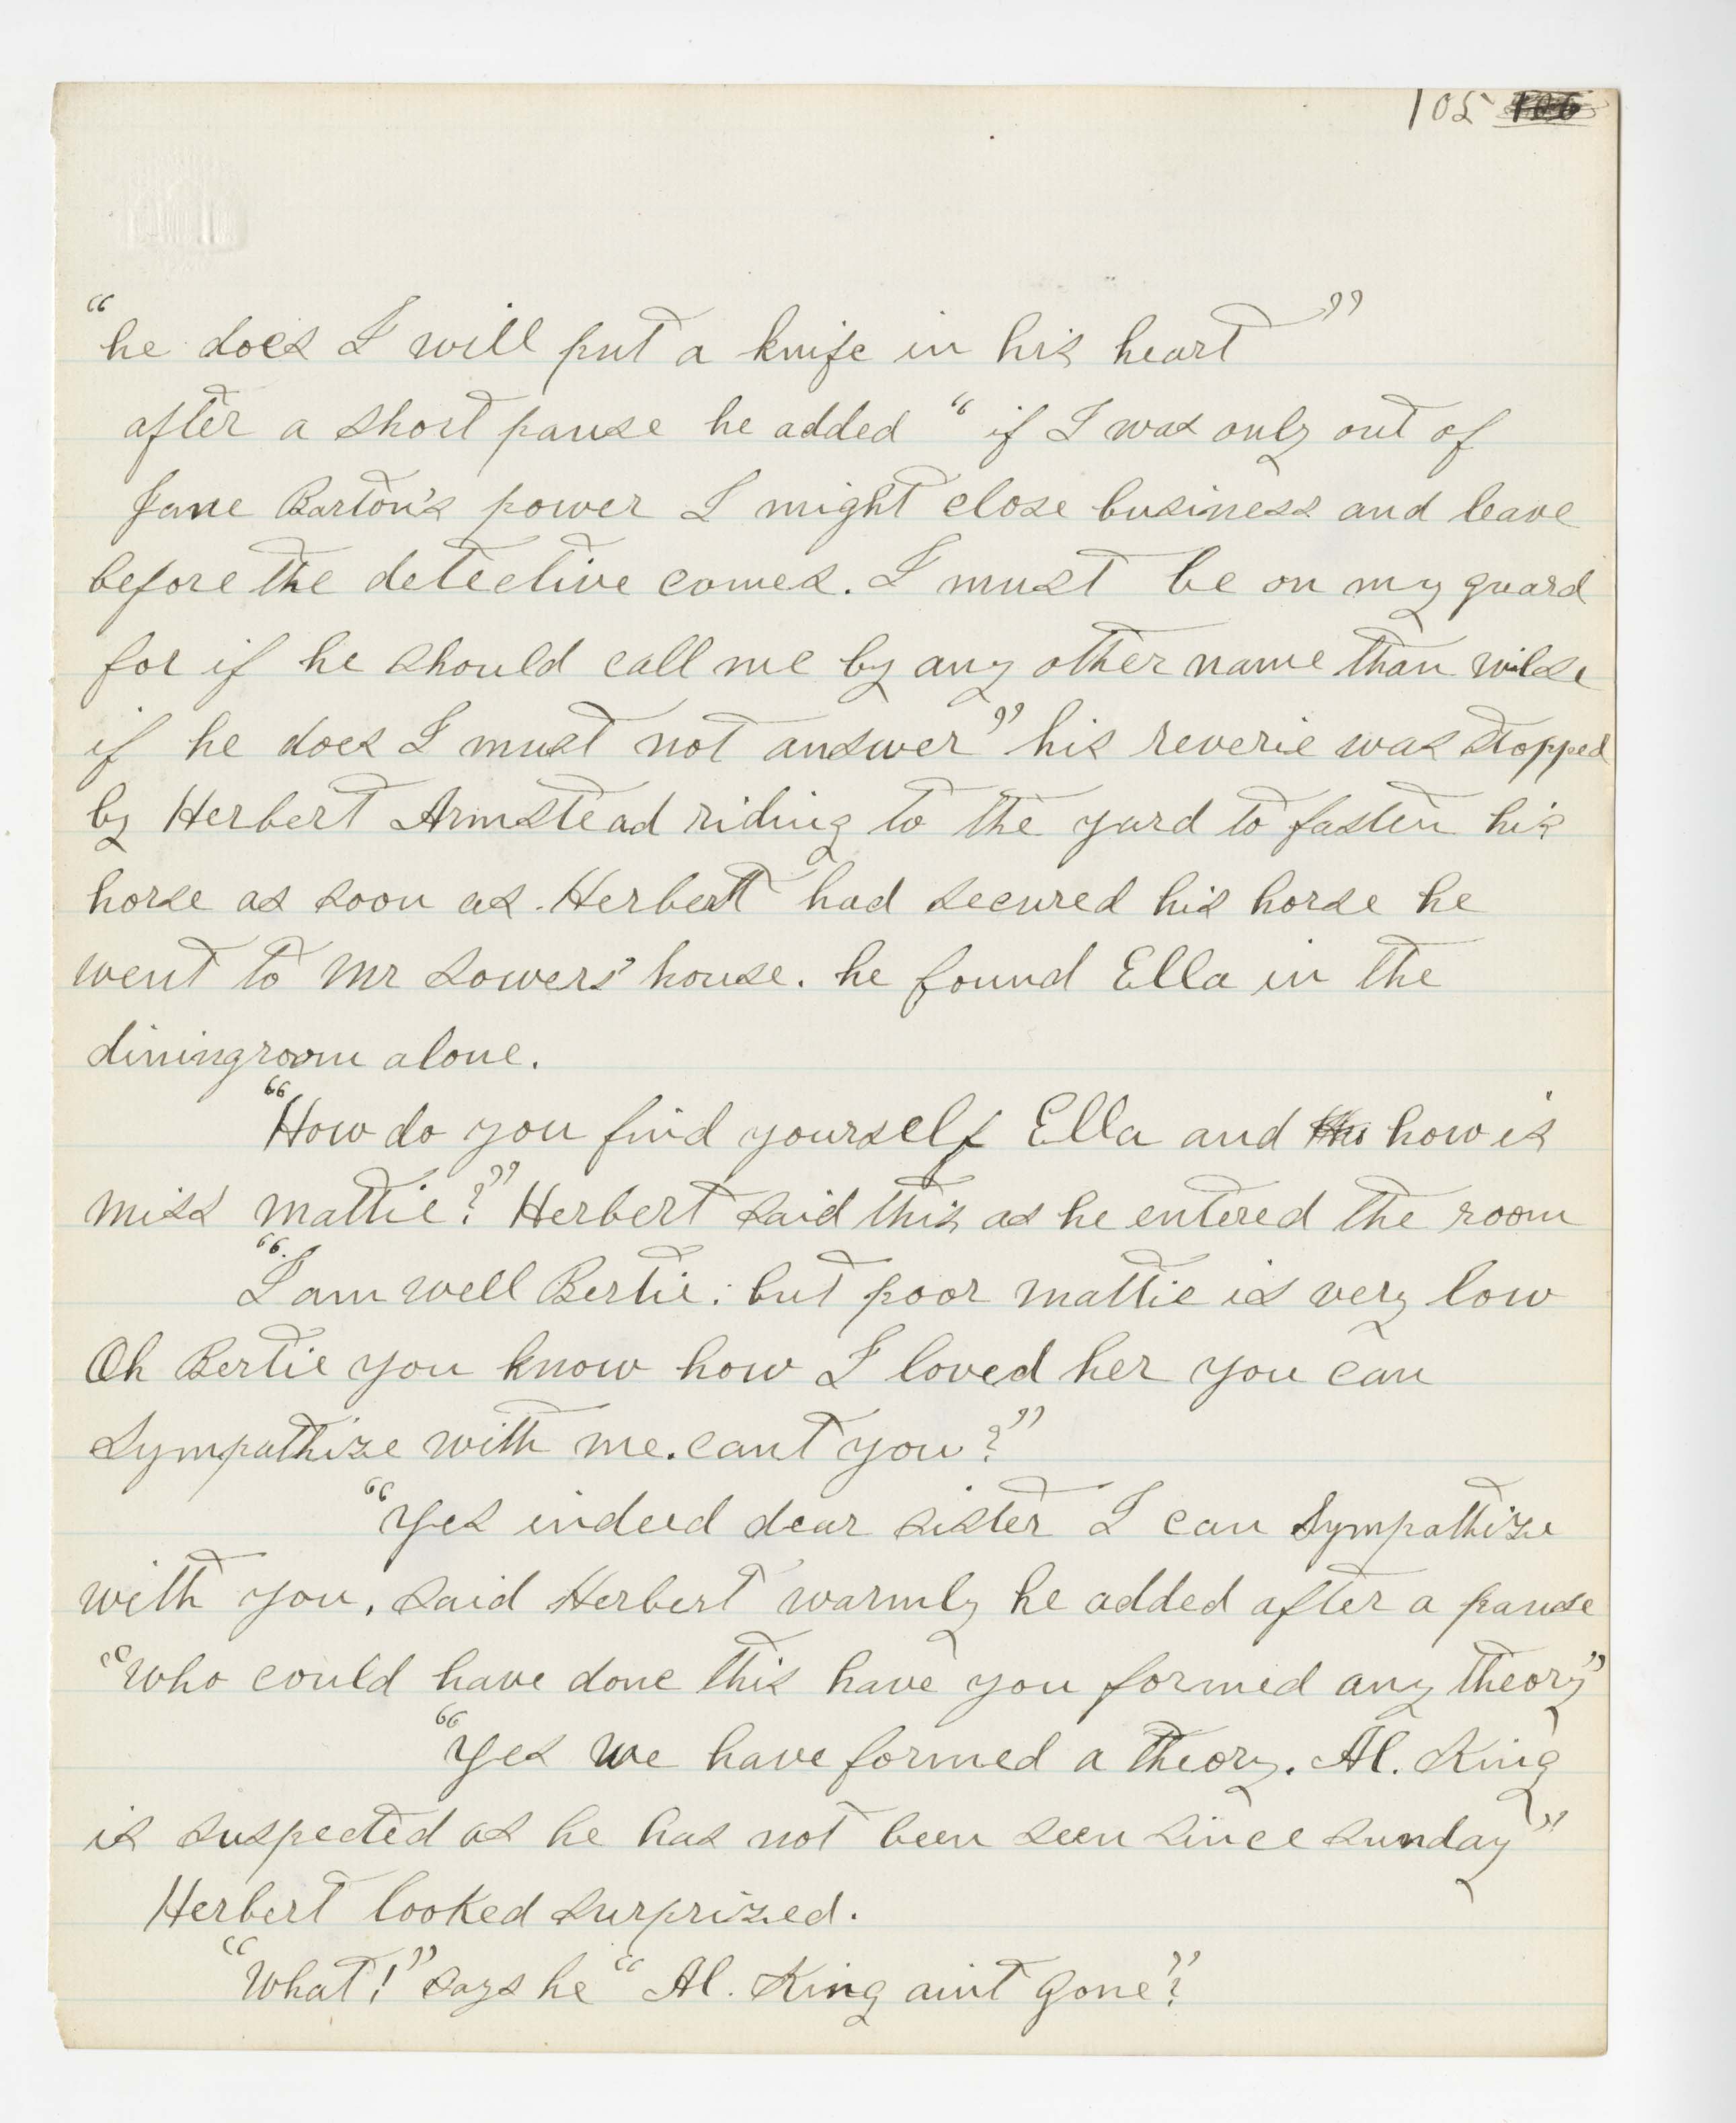 105 106
"he does I will put a knife in his heart"
after a short pause he added "if I was only out of
Jane Barton's power I might close business and leave
before the detective comes. I must be on my guard
for if he should call me by any other name than wilse
if he does I must not answer" his reverie was stopped
by Herbert Armstead riding to the yard to fasten his
horse as soon as Herbert had secured his horse he
went to Mr Sowers' house. he found Ella in the
diningroom alone.
"How do you find yourself Ella and how is
miss mattie?" Herbert said this as he entered the room
"I am well Bertie: but poor mattie is very low
Oh Bertie you know how I loved her you can
sympathize with me. cant you?"
"Yes indeed dear sister I can Sympathize
with you, said Herbert warmly he added after a pause
"who could have done this have you formed any theory"
"Yes we have formed a theory. Al. King
is suspected as he has not been seen since sunday"
Herbert looked surprized.
"What!" says he "Al. King aint gone"?